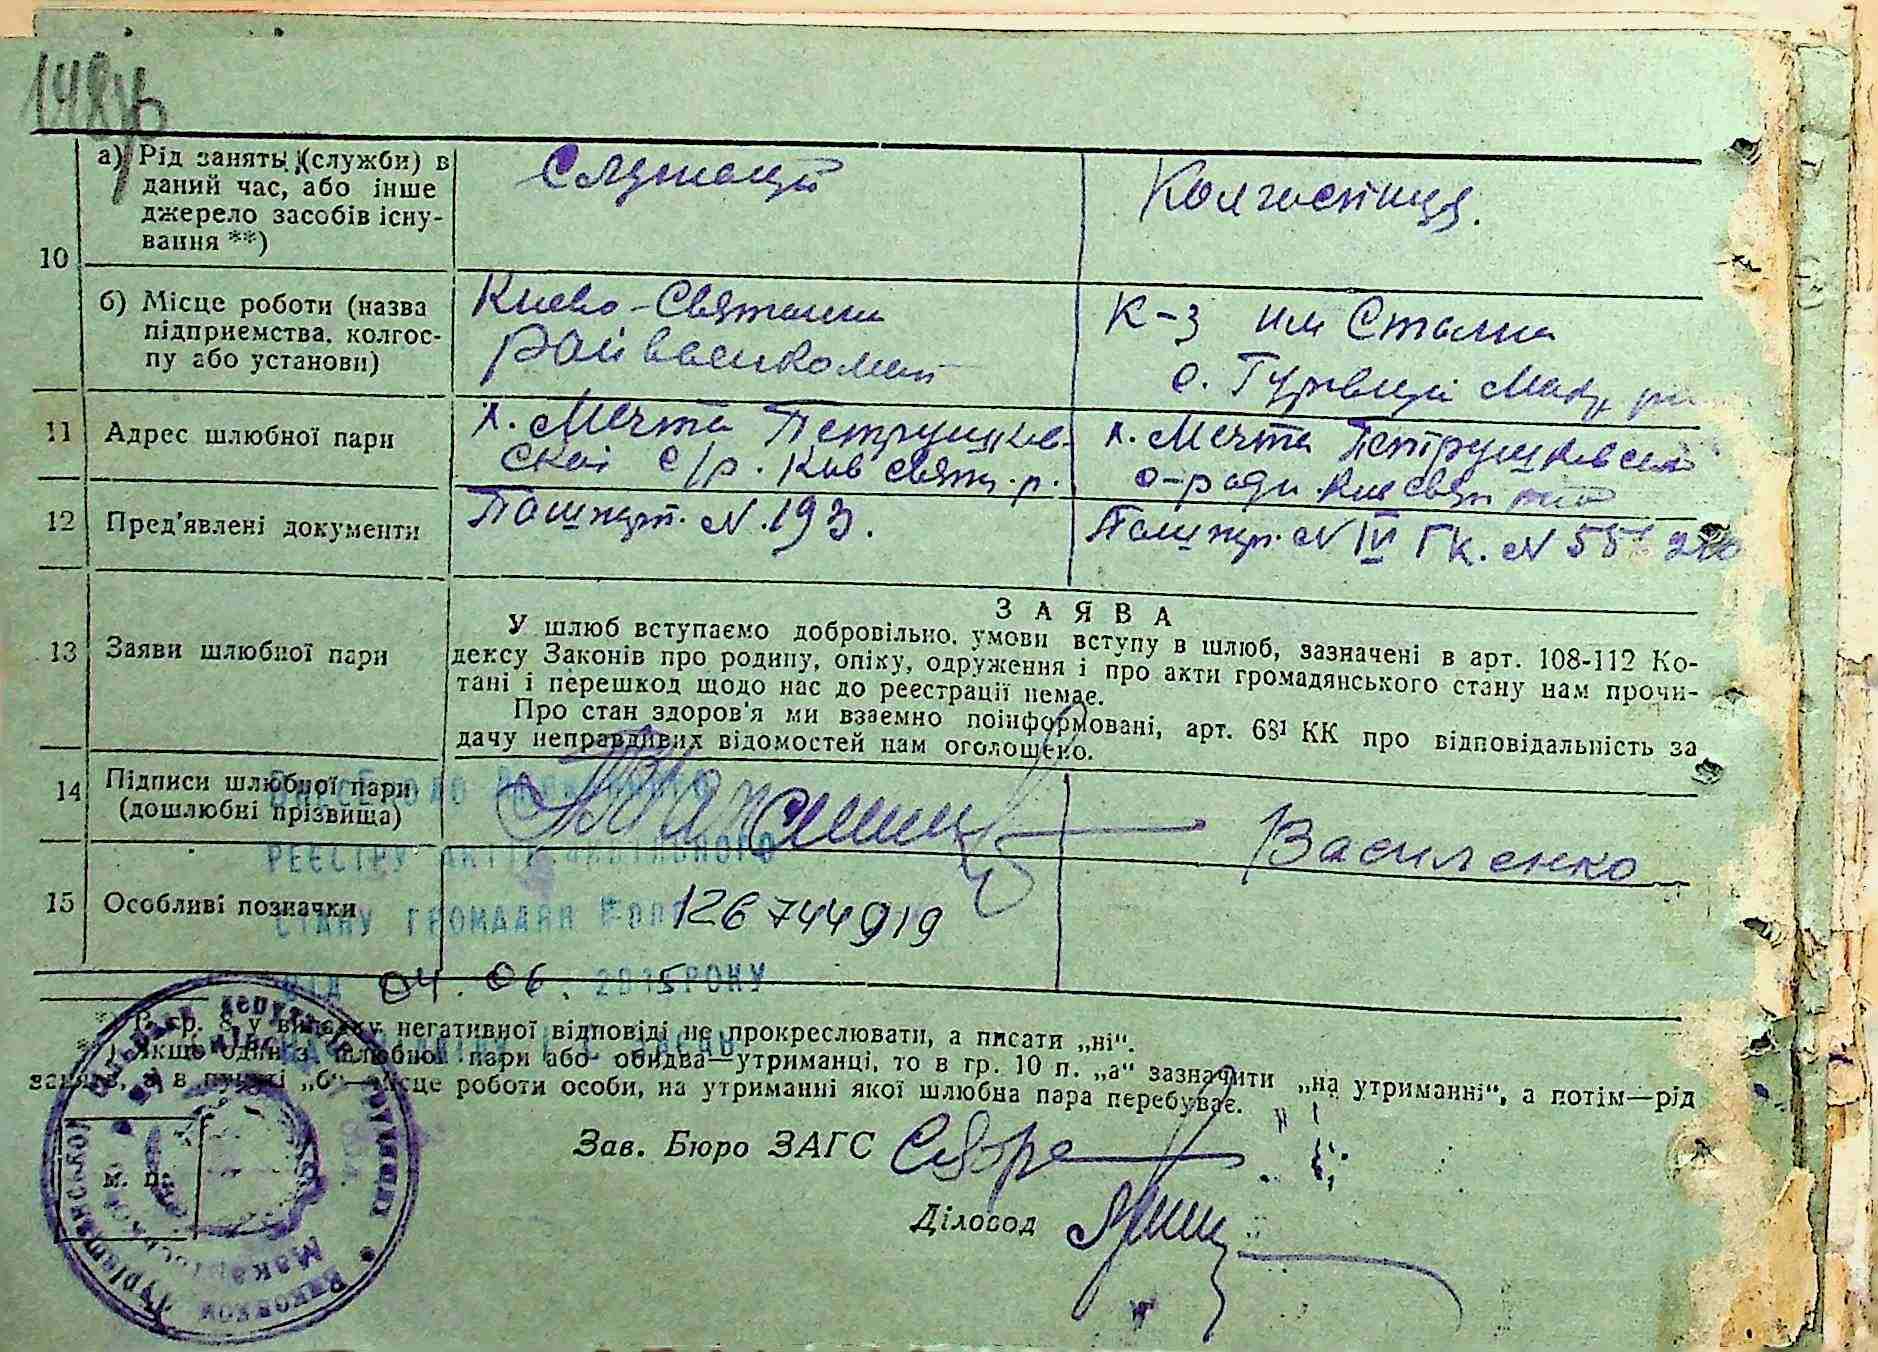 148зв
а) Рід занять (служби) в
даний час, або інше
джерело засобів існу-
вання **)
Служащий
Колгоспниця.
10
б) Місце роботи (назва
підприємства, колгос-
пу або установи)
Киево-Святошин
Райвоенкомат
К-з им Сталина
с. Гуровщи Мак.
11 Адрес шлюбної пари
х. Мечта Петрушков-
ской с/р. Киев святош. р.
х. Мечта Петрушковской
с-ради Киев
12 Пред'явлені документи
Пашпорт. N. 193.
Пашпор. N IV ГК. N
З А Я В А
13 Заяви шлюбної пари
У шлюб вступаємо добровільно. умови вступу в шлюб, зазначені в арт. 108-112 Ко-
дексу Законів про родину, опіку, одруження і про акти громадянського стану нам прочи-
тані і перешкод щодо нас до реєстрації немає.
Про стан здоров'я ми взаємно поінформовані, арт. 68¹ КК про відповідальність за
дачу неправдивих відомостей нам оголошено.
14 Підписи шлюбної пари
(дошлюбні прізвища)
Василенко
ВНЕСЕНО ДО
РЕЄСТРУ АКТІВ ЦИВІЛЬНОГО
15 Особливі позначки
СТАНУ ГРОМАДЯН
126744919
ВІД 04. 06. 2015 РОКУ
*) В гр. 8 у випадку негативної відповіді не прокреслювати, а писати „ні“.
**) Якщо один з шлюбної пари або обидва—утриманці, то в гр. 10 п. „а“ зазначити „на утриманні“, а потім—рід
занять, а в пункті „б“—місце роботи особи, на утриманні якої шлюбна пара перебуває.
Зав. Бюро ЗАГС
м. п.
Діловод